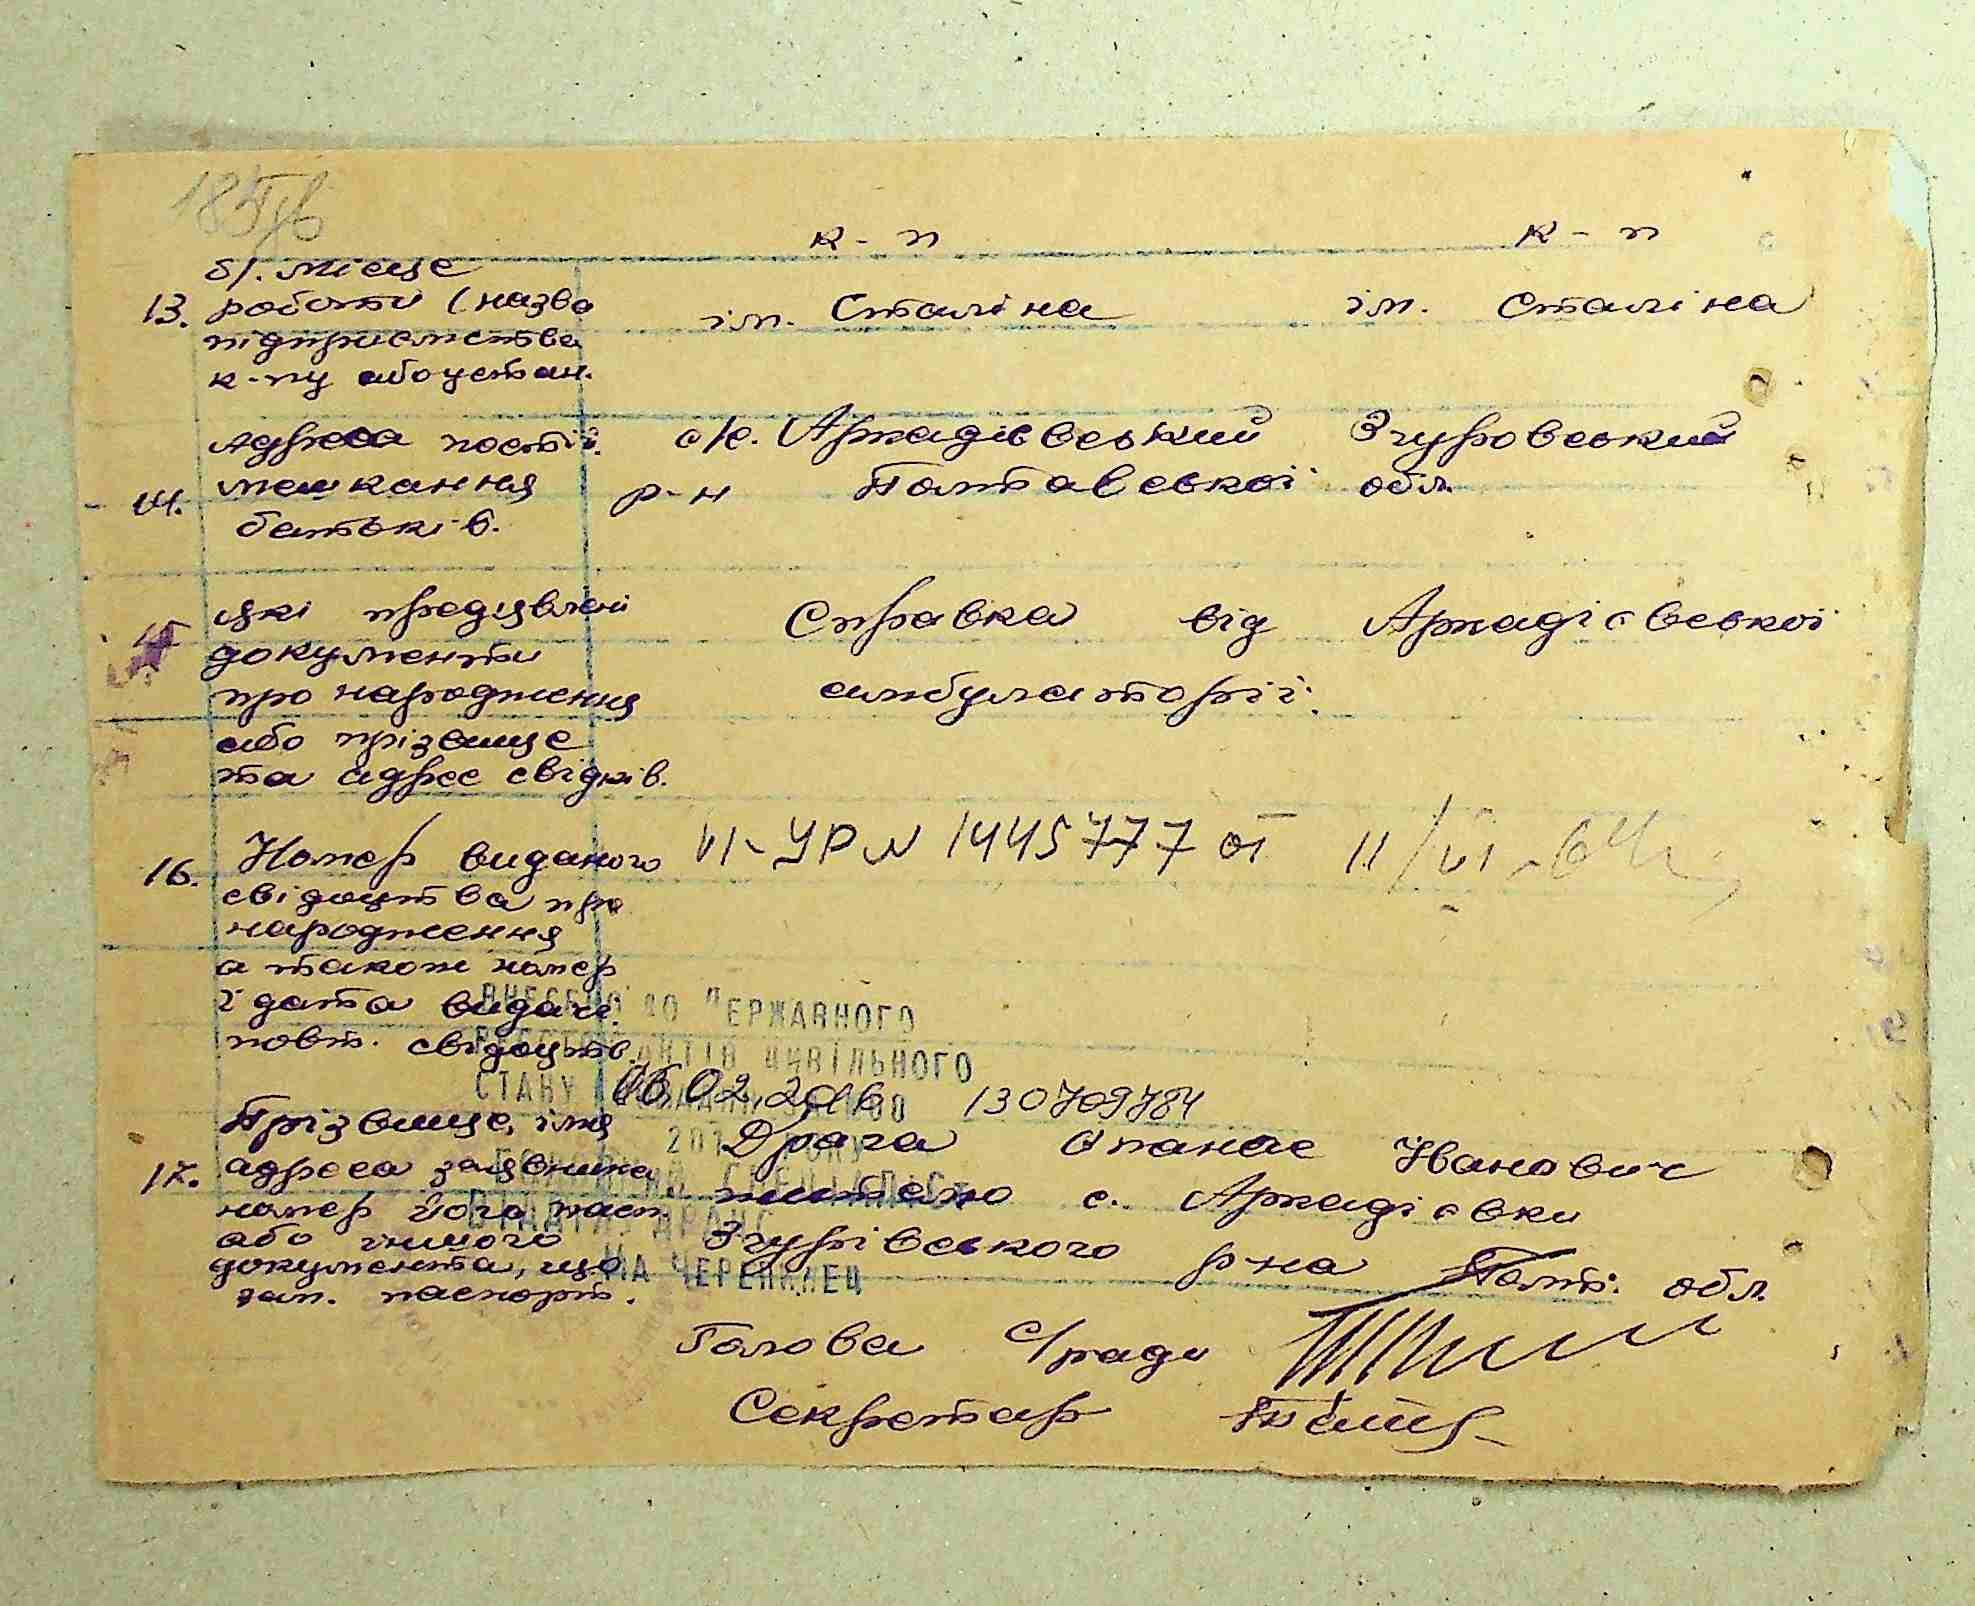 к-п к-п
б/. місце
13. роботи (назва ім. Сталіна ім. Сталіна
підприємства
к-пу або устан.
Адреса постій. с/р. Аркадієвський Згуровський
14. мешкання р-н Полтавської обл.
батьків.
які предявлені Справка від Аркадієвської
15 документи
про народження амбулаторії.
або прізвище
та адрес свідків.
16. Номер виданого VI-УР № 1445777 от 11/VI-64г
свідоцтва про
народження
а також номер
і дата видачі
повт. свідоцтв.
ВНЕСЕНО ДО ДЕРЖАВНОГО
РЕЄСТРУ АКТІВ ЦИВІЛЬНОГО
СТАНУ
06.02.2016 130709784
Прізвище, імя Драга Опанас Іванович
17. адреса заявника житель с. Аркадієвки
номер його пасп.
або іншого Згурівського р-на Полт. обл.
документа, що
зам. паспорт.
ГОЛОВНИЙ СПЕЦІАЛІСТ
ВІДДІЛУ ДРАЦС
Голова с/ради
Секретар